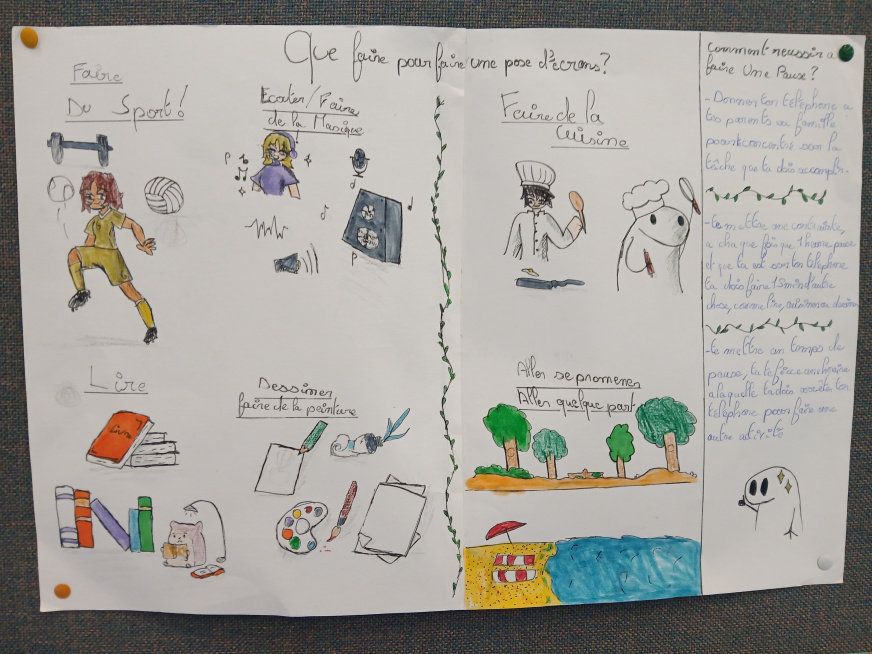 Que faire pour faire une pose d'écrans?
Faire
Du Sport!
Ecouter/Faire
de la Musique
Faire de la
Cuisine
Lire
Livre
Dessiner
faire de la peinture
Aller se promener
Aller quelque part
Comment reussir a
faire Une Pause?
- Donner ton téléphone a
tes parents ou famille
pour te concentré sur la
tâche que tu dois accomplir.
- te mettre une contrainte,
a chaque fois que 1 heure passe
et que tu est sur ton téléphone
tu dois faire 15 min d'autre
chose, comme lire, ou dessin
- te mettre un temps de
pause, tu te fixe une horaire
a laquelle tu dois arrêter ton
téléphone pour faire une
autre activité